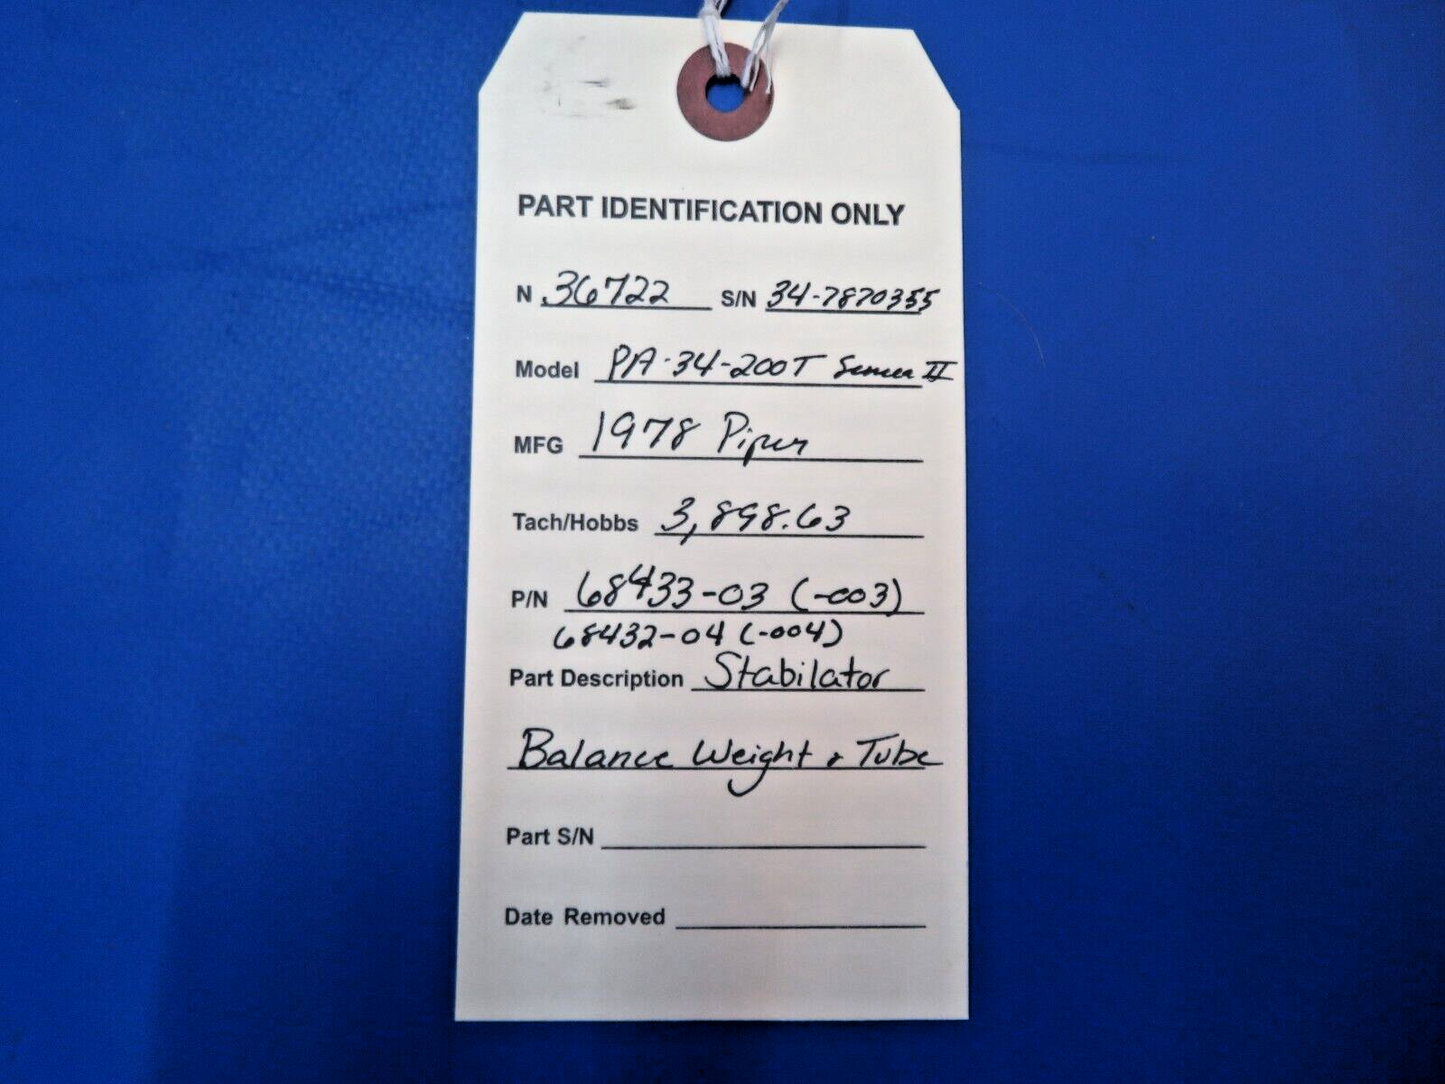 PART IDENTIFICATION ONLY
N 36722 S/N 34-7870355
Model PA-34-200T Seneca II
MFG 1978 Piper
Tach/Hobbs 3,898.63
P/N 68433-03 (-003)
68432-04 (-004)
Part Description Stabilator
Balance Weight & Tube
Part S/N
Date Removed